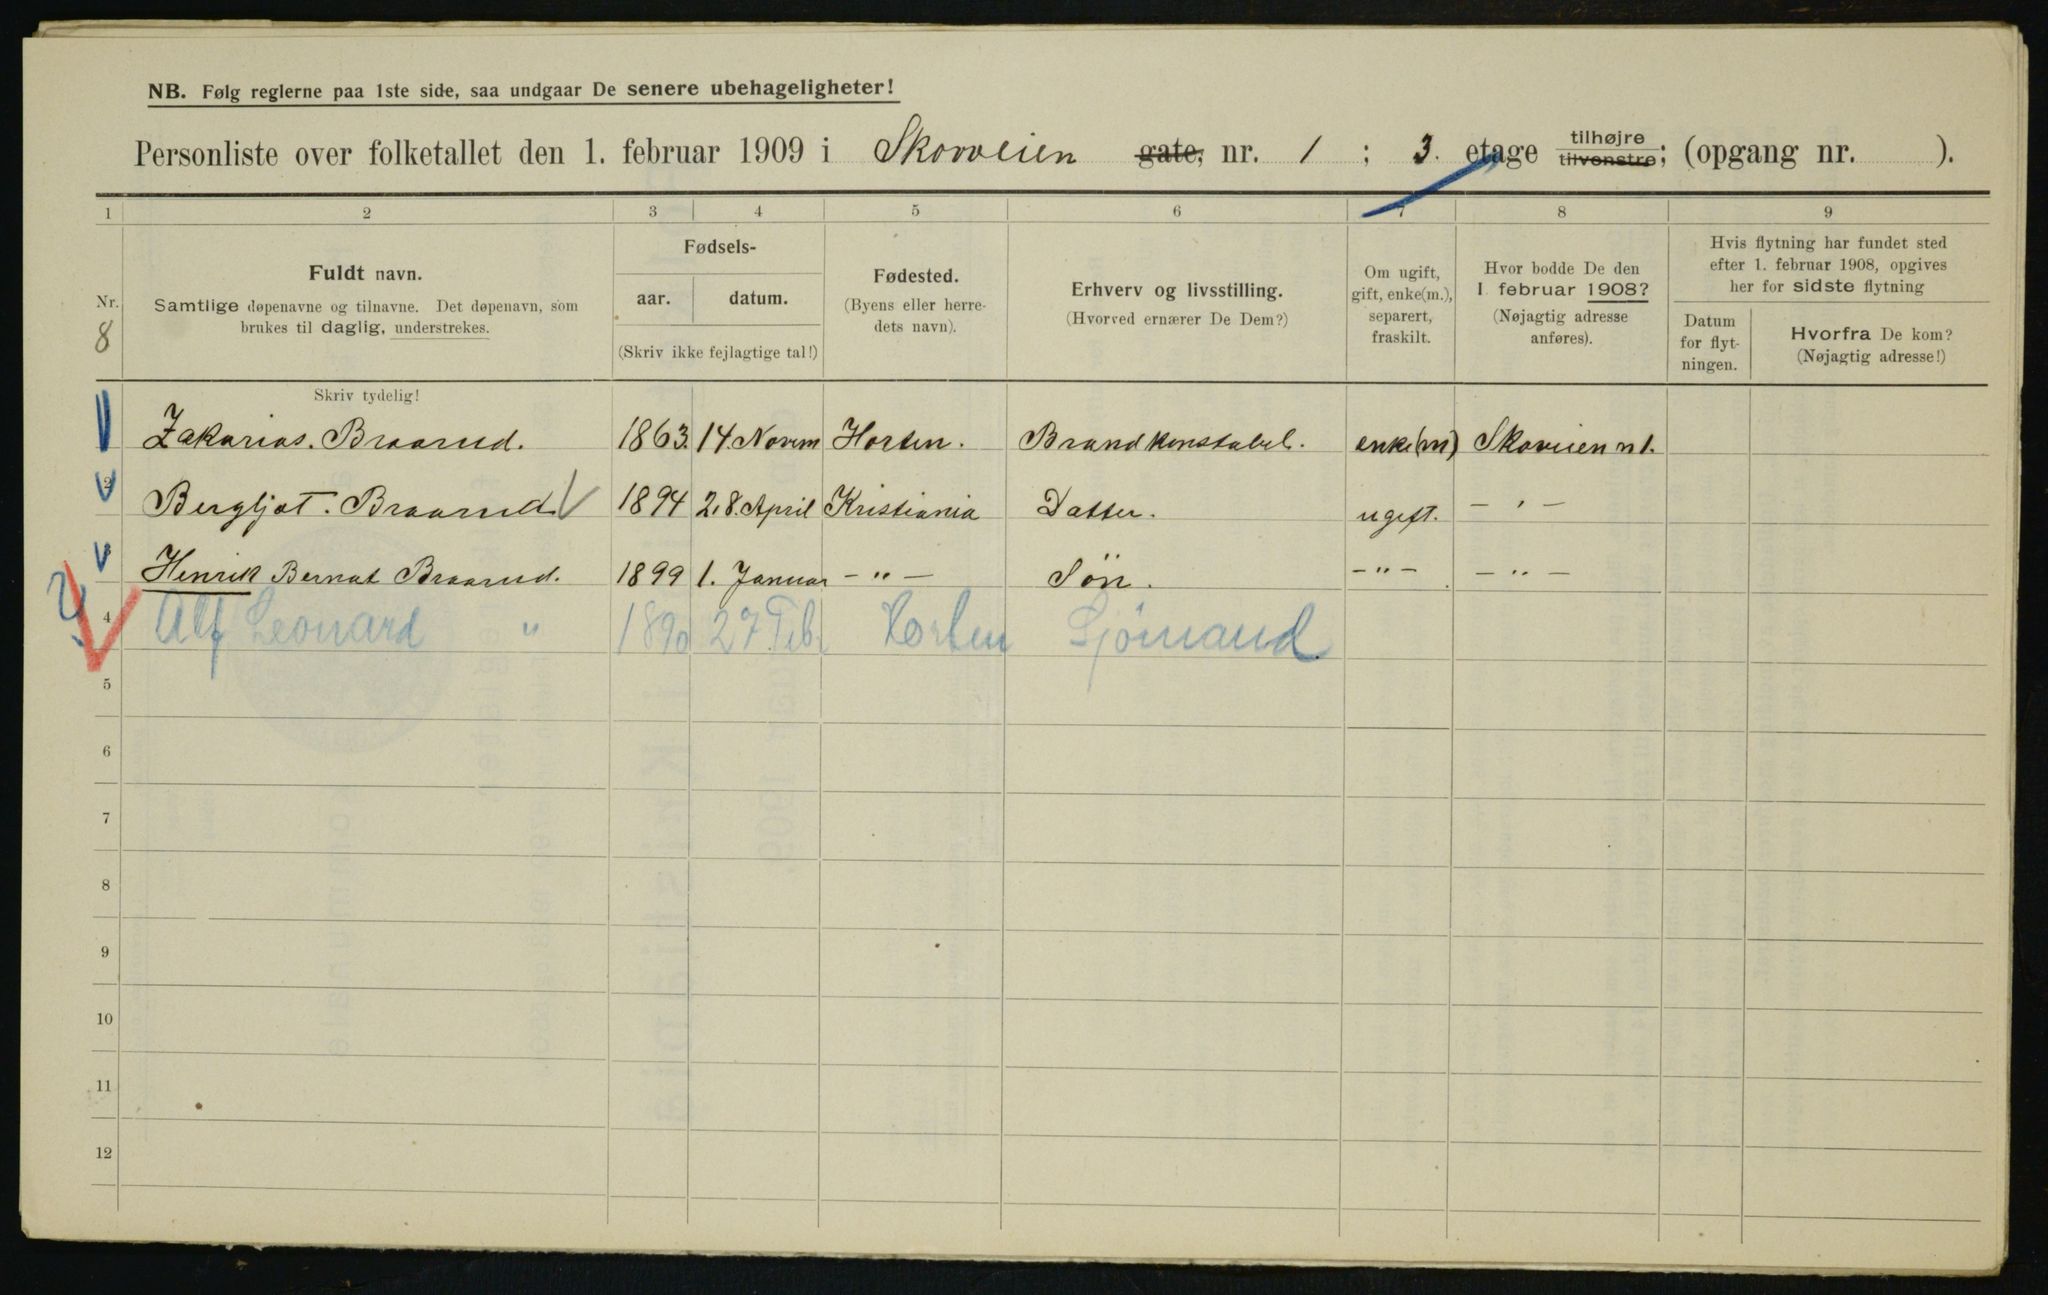 NB. Følg reglerne paa 1ste side, saa undgaar De senere ubehageligheter!
Personliste over folketallet den 1. februar 1909 i Skovveien gate, nr. 1 ; 3. etage tilhøjre tilvenstre; (opgang nr. ).
1 2 3 4 5 6 7 8 9
Nr.
8
Fuldt navn.
Samtlige døpenavne og tilnavne. Det døpenavn, som
brukes til daglig, understrekes.
Fødsels-
aar. datum.
(Skriv ikke fejlagtige tal!)
Fødested.
(Byens eller herre-
dets navn).
Erhverv og livsstilling.
(Hvorved ernærer De Dem?)
Om ugift,
gift, enke(m.),
separert,
fraskilt.
Hvor bodde De den
1 februar 1908?
(Nøjagtig adresse
anføres).
Hvis flytning har fundet sted
efter 1. februar 1908, opgives
her for sidste flytning
Datum
for flyt-
ningen.
Hvorfra De kom?
(Nøjagtig adresse!)
Skriv tydelig!
Zakarias. Braarud. 1863. 14. Novem Horten. Brandkonstabel. enke(m) Skoveien n 1.
2 Bergljot. Braarud 1894 28. April Kristiania Datter. ugift. - " -
3 Henrik Bernat Braarud. 1899 1. Januar - " - Søn. - " - - " -
4 Alf Leonard " 1890 27 Feb. Horten Sjømand
5
6
7
8
9
10
11
12